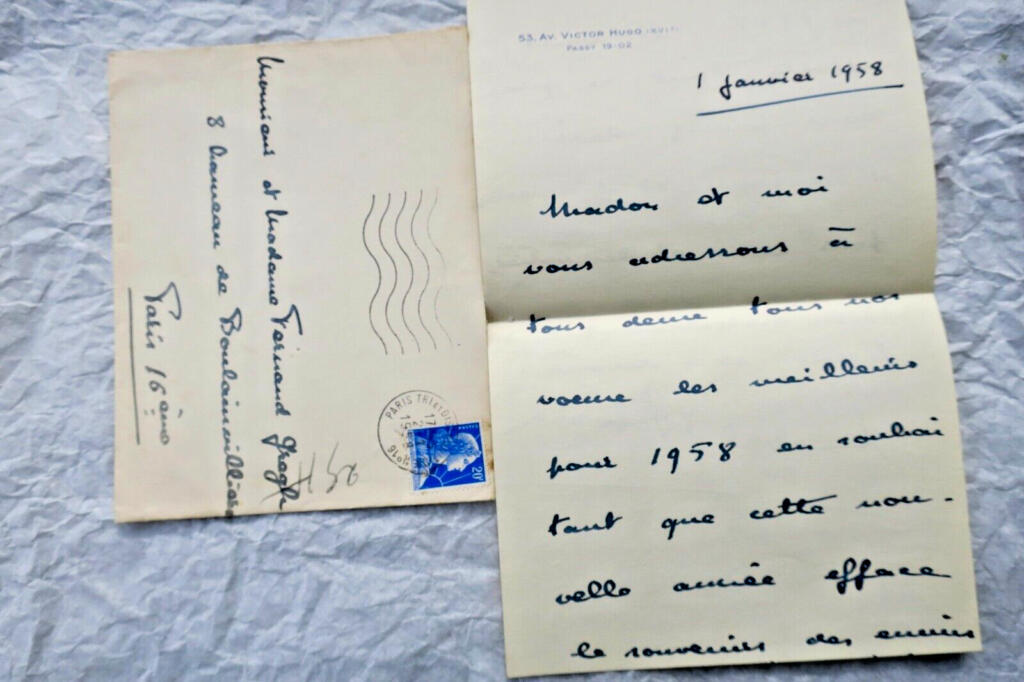 Monsieur et Madame Fernand Gregh
8 hameau de Boulainvilliers
Paris 16 ème
PARIS TRI et
20F
53, AV. VICTOR HUGO (XVIe)
PASSY 19-02
1 Janvier 1958
Madon et moi
vous adressons à
tous deux tous nos
voeux les meilleurs
pour 1958 en souhai
tant que cette nou-
velle année efface
le souvenir des ennuis